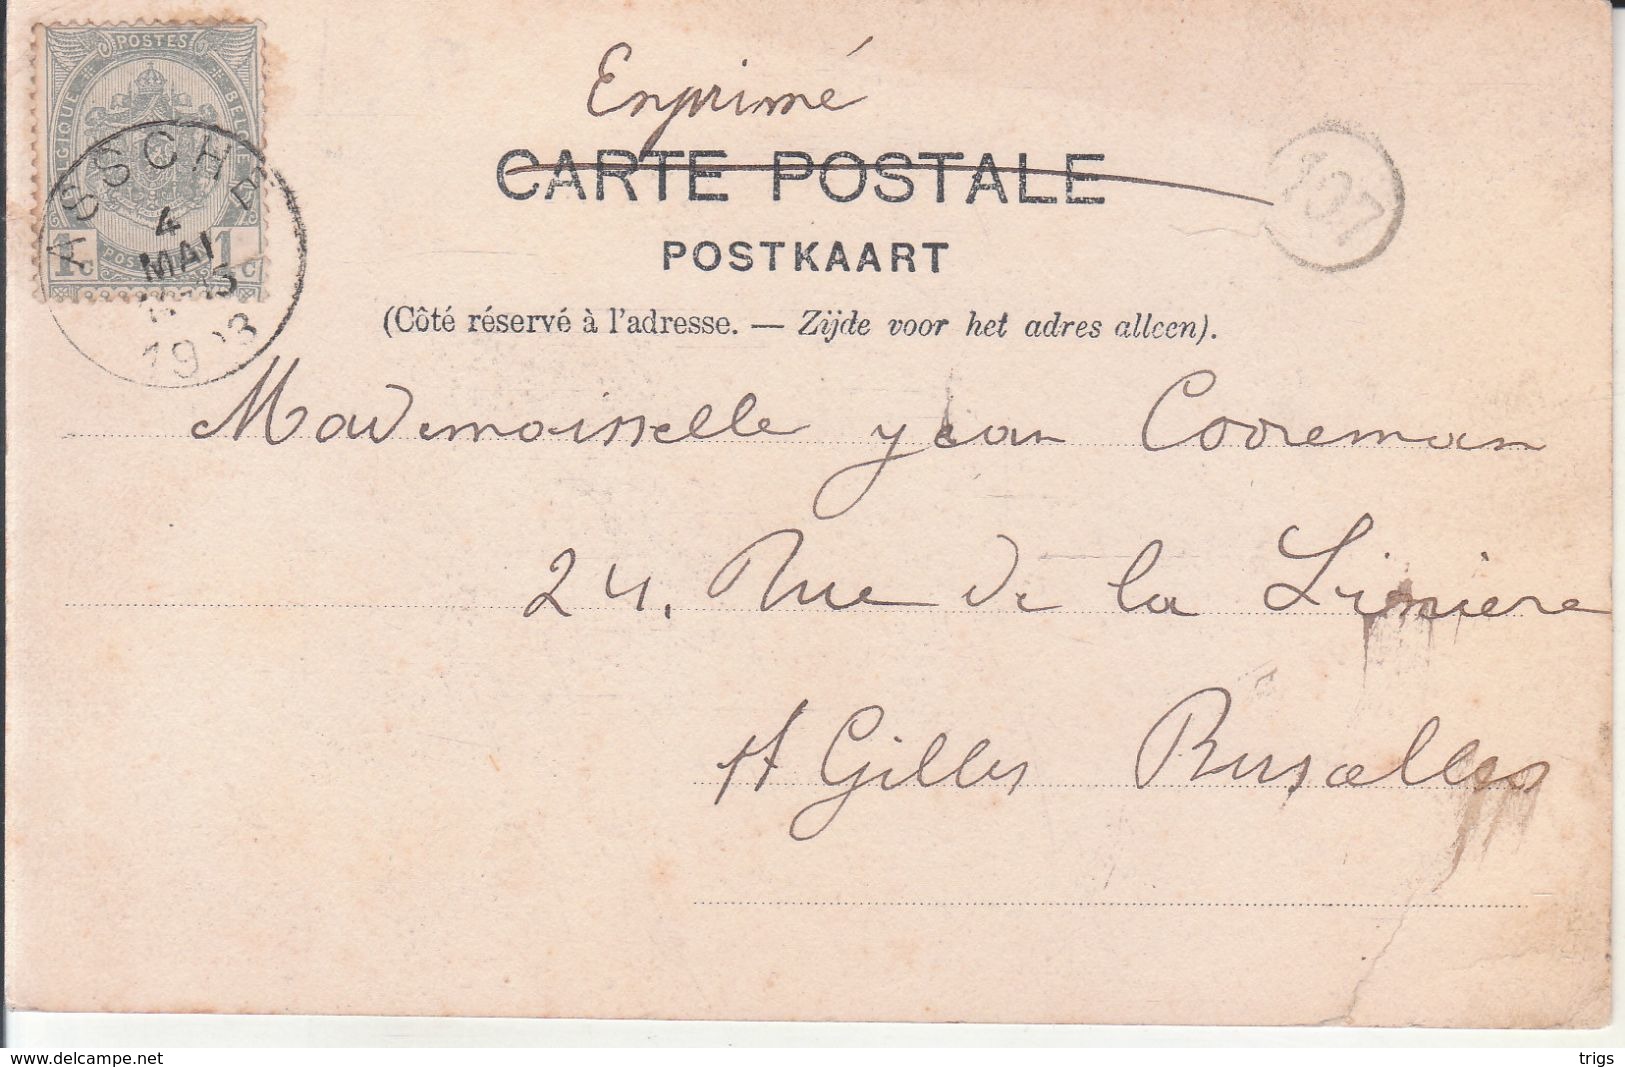 POSTES
BELGIQUE BELGIË
1c 1c
ASSCHE
4
MAI
Enprimé
CARTE POSTALE
107
POSTKAART
(Côté réservé à l'adresse. — Zijde voor het adres alleen).
Mademoisselle yean Cooreman
24, Rue de la Liniere
St Gilles Bruxelles
www.delcampe.net
trigs